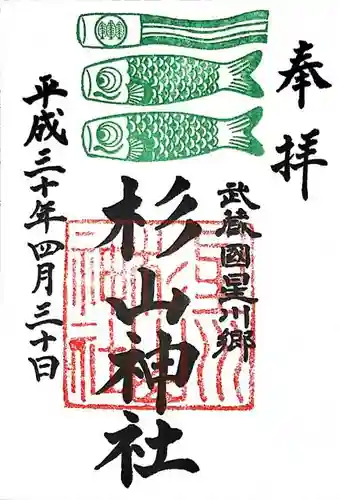 奉拝
武蔵國星川郷
杉山神社
平成三十年四月三十日